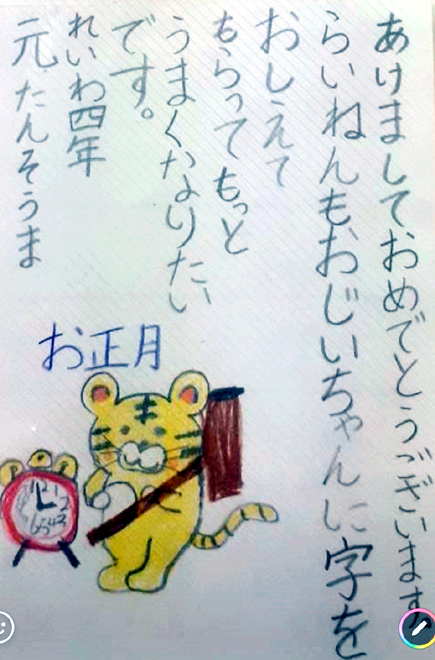 あけましておめでとうございます。
らいねんもおじいちゃんに字を
おしえて
もらってもっと
うまくなりたい
です。
れいわ四年
元たんそうま
お正月